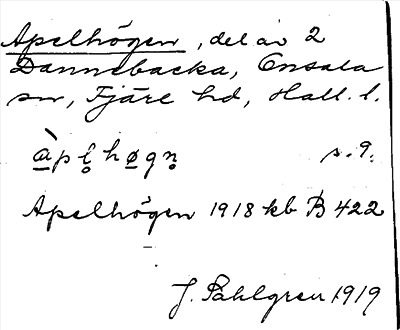 Apelhögen, del av 2
Dannebacka, Onsala
sn, Fjäre hd, Hall. l.
àpl̥høgn̥ s. 9.
Apelhögen 1918 kb B 422
J. Sahlgren 1919